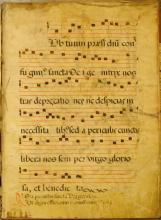 Ub tuum præsi diú con
fugim⁹ sancta De i ge nitrix nos
tras depreca tio nes ne despicias in
necessita tib⁹ sed a periculis cunctis
libera nos sem per virgo glorio
sa, et benedic ta